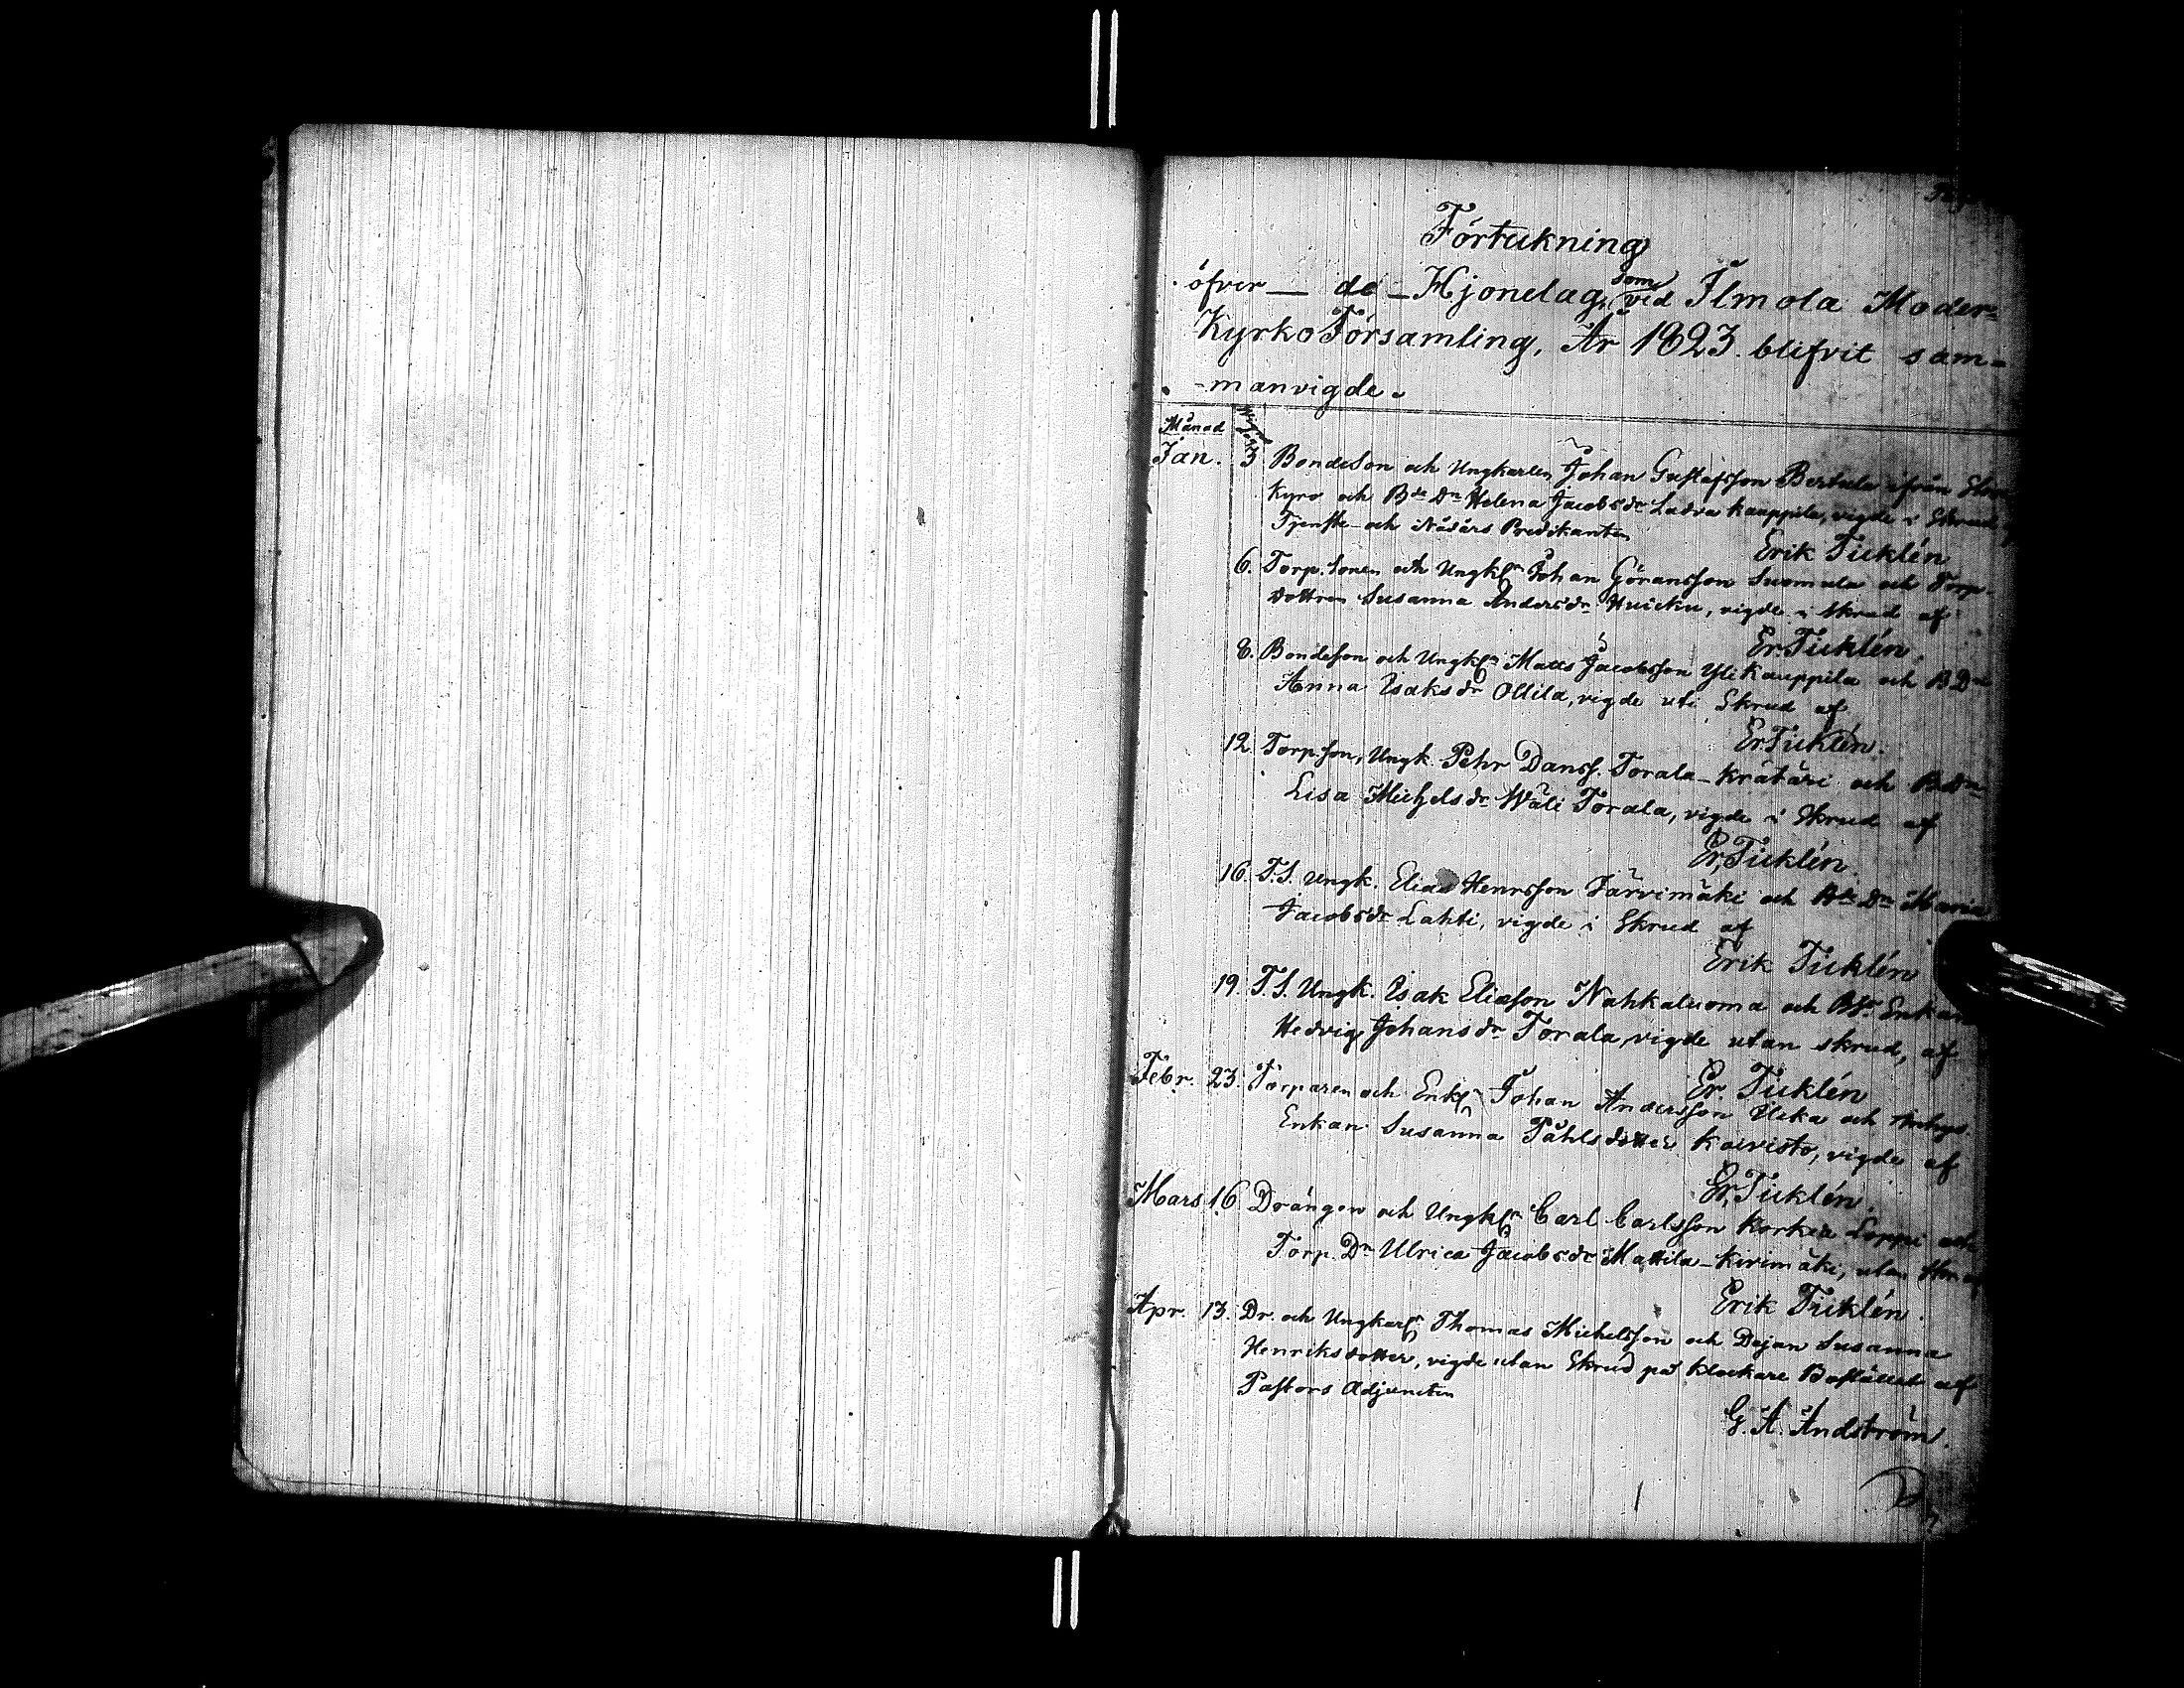 Förtekning
öfver de Hjonelag, som vid Ilmola Moder=
KyrkoFörsamling, År 1823. blifvit sam=
=manvigde.
Månad
Jan. 3 Bondeson och Ungkarlen Johan Gustafsson Bertula ifrån Stor
Kyro och Bde Dn Helena Jacobsdr Ladva Kauppila, vigde i Skrud
Tjenste- och Nådårs Predikanten
Erik Ticklén
6. Torp. Sonen och Ungkln Johan Göransson Suomula och Torp.
dottren Susanna Andersdr Huicku, vigde i skrud af
Er Ticklén.
8. Bondeson och Ungkln Matts Jacobsson Yli Kauppila och B Dn
Anna Isaksdr Ollila, vigde uti Skrud af
Er Ticklén.
12. Torpson, Ungk. Pehr Danss. Torala-Kråtäri och
Lisa Michelsdr Wäli Torala, vigde i Skrud af
Er, Ticklén.
16. T.S. Ungk. Elias Henrsson Järvimäki och Bde Dn Maria
Jacobsdr Lahti, vigde i Skrud af
Erik Ticklén
19. T.S. Ungk. Isak Eliason Nahkaluoma och Enkan
Hedvig Johansdr Torala, vigde utan skrud, af
Er. Ticklén
Febr. 23. Torparen och Enkln Johan Andersson Ulka och
Enkan Susanna Påhlsdotter Koivisto, vigde af
Er, Ticklén.
Mars 16 Drängen och Ungkln Carl Carlsson Korkea Loppi och
Torp. Dn Ulrica Jacobsdr Mattila-Kivimäki, utan
Erik Ticklén.
Apr. 13. Dr. och Ungkarln Thomas Michelsson och Dejan Susanna
Henriksdotter, vigde utan Skrud på Klockare Bostället af
Pastors Adjuncten
G. A. Andström.